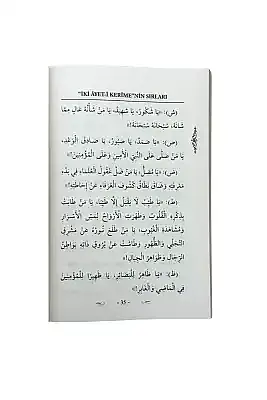 "İKİ ÂYET-İ KERÎME"NİN SIRLARI
(ش): «يَا شَكُورُ، يَا شَهِيدُ، يَا مَنْ شَأْنُهُ عَالٍ مِمَّا
شَانَهُ، سُبْحَانَهُ سُبْحَانَهُ!»
(ص): «يَا صَمَدُ، يَا صَبُورُ، يَا صَادِقَ الْوَعْدِ،
يَا مَنْ صَلَّى عَلَى النَّبِيِّ الْأَمِينِ وَعَلَى الْمُؤْمِنِينَ!»
(ض): «يَا مَنْ ضَلَّ عُقُولُ الْعُلَمَاءِ فِي بَدْءِ
مَعْرِفَتِهِ وَضَاقَ نِطَاقُ كُشُوفِ الْعُرَفَاءِ عَنْ إِحَاطَتِهِ!»
(ط): «يَا طَيِّبُ لَا يَقْبَلُ إِلَّا طَيِّبًا، يَا مَنْ طَابَتْ
بِذِكْرِهِ الْقُلُوبُ وَطَهُرَتِ الْأَرْوَاحُ لِلَمْسِ الْأَسْرَارِ
وَمُشَاهَدَةِ الْغُيُوبِ، يَا مَنْ طَلَعَ نُورُهُ عَنْ مَشْرِقِ
التَّجَلِّي وَالظُّهُورِ وَطَاشَتْ عَنْ بُرُوقِ ذَاتِهِ بَوَاطِنُ
الرِّجَالِ وَظَوَاهِرُ الْجِبَالِ!»
(ظ): «يَا ظَاهِرُ لِلْبَصَائِرِ، يَا ظَهِيرًا لِلْمُؤْمِنِينَ
فِي الْمَاضِي وَالْغَابِرِ!»
- 35 -